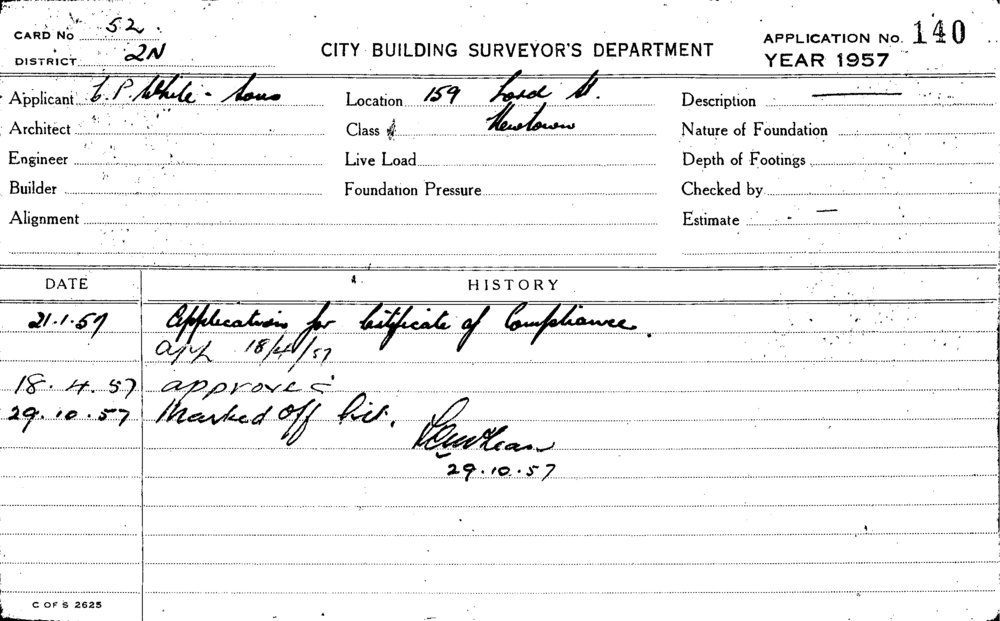 CARD No 52
DISTRICT 2N
CITY BUILDING SURVEYOR'S DEPARTMENT
APPLICATION No. 140
YEAR 1957
Applicant C. P. White - Sons
Location 159 Lord St.
Newtown
Description —
Architect
Class
Nature of Foundation
Engineer
Live Load
Depth of Footings
Builder
Foundation Pressure
Checked by
Alignment
Estimate —
DATE HISTORY
21.1.57 Application for Certificate of Compliance.
app 18/4/57
18.4.57 approved
29.10.57 Marked off list.
29.10.57
C OF S 2625